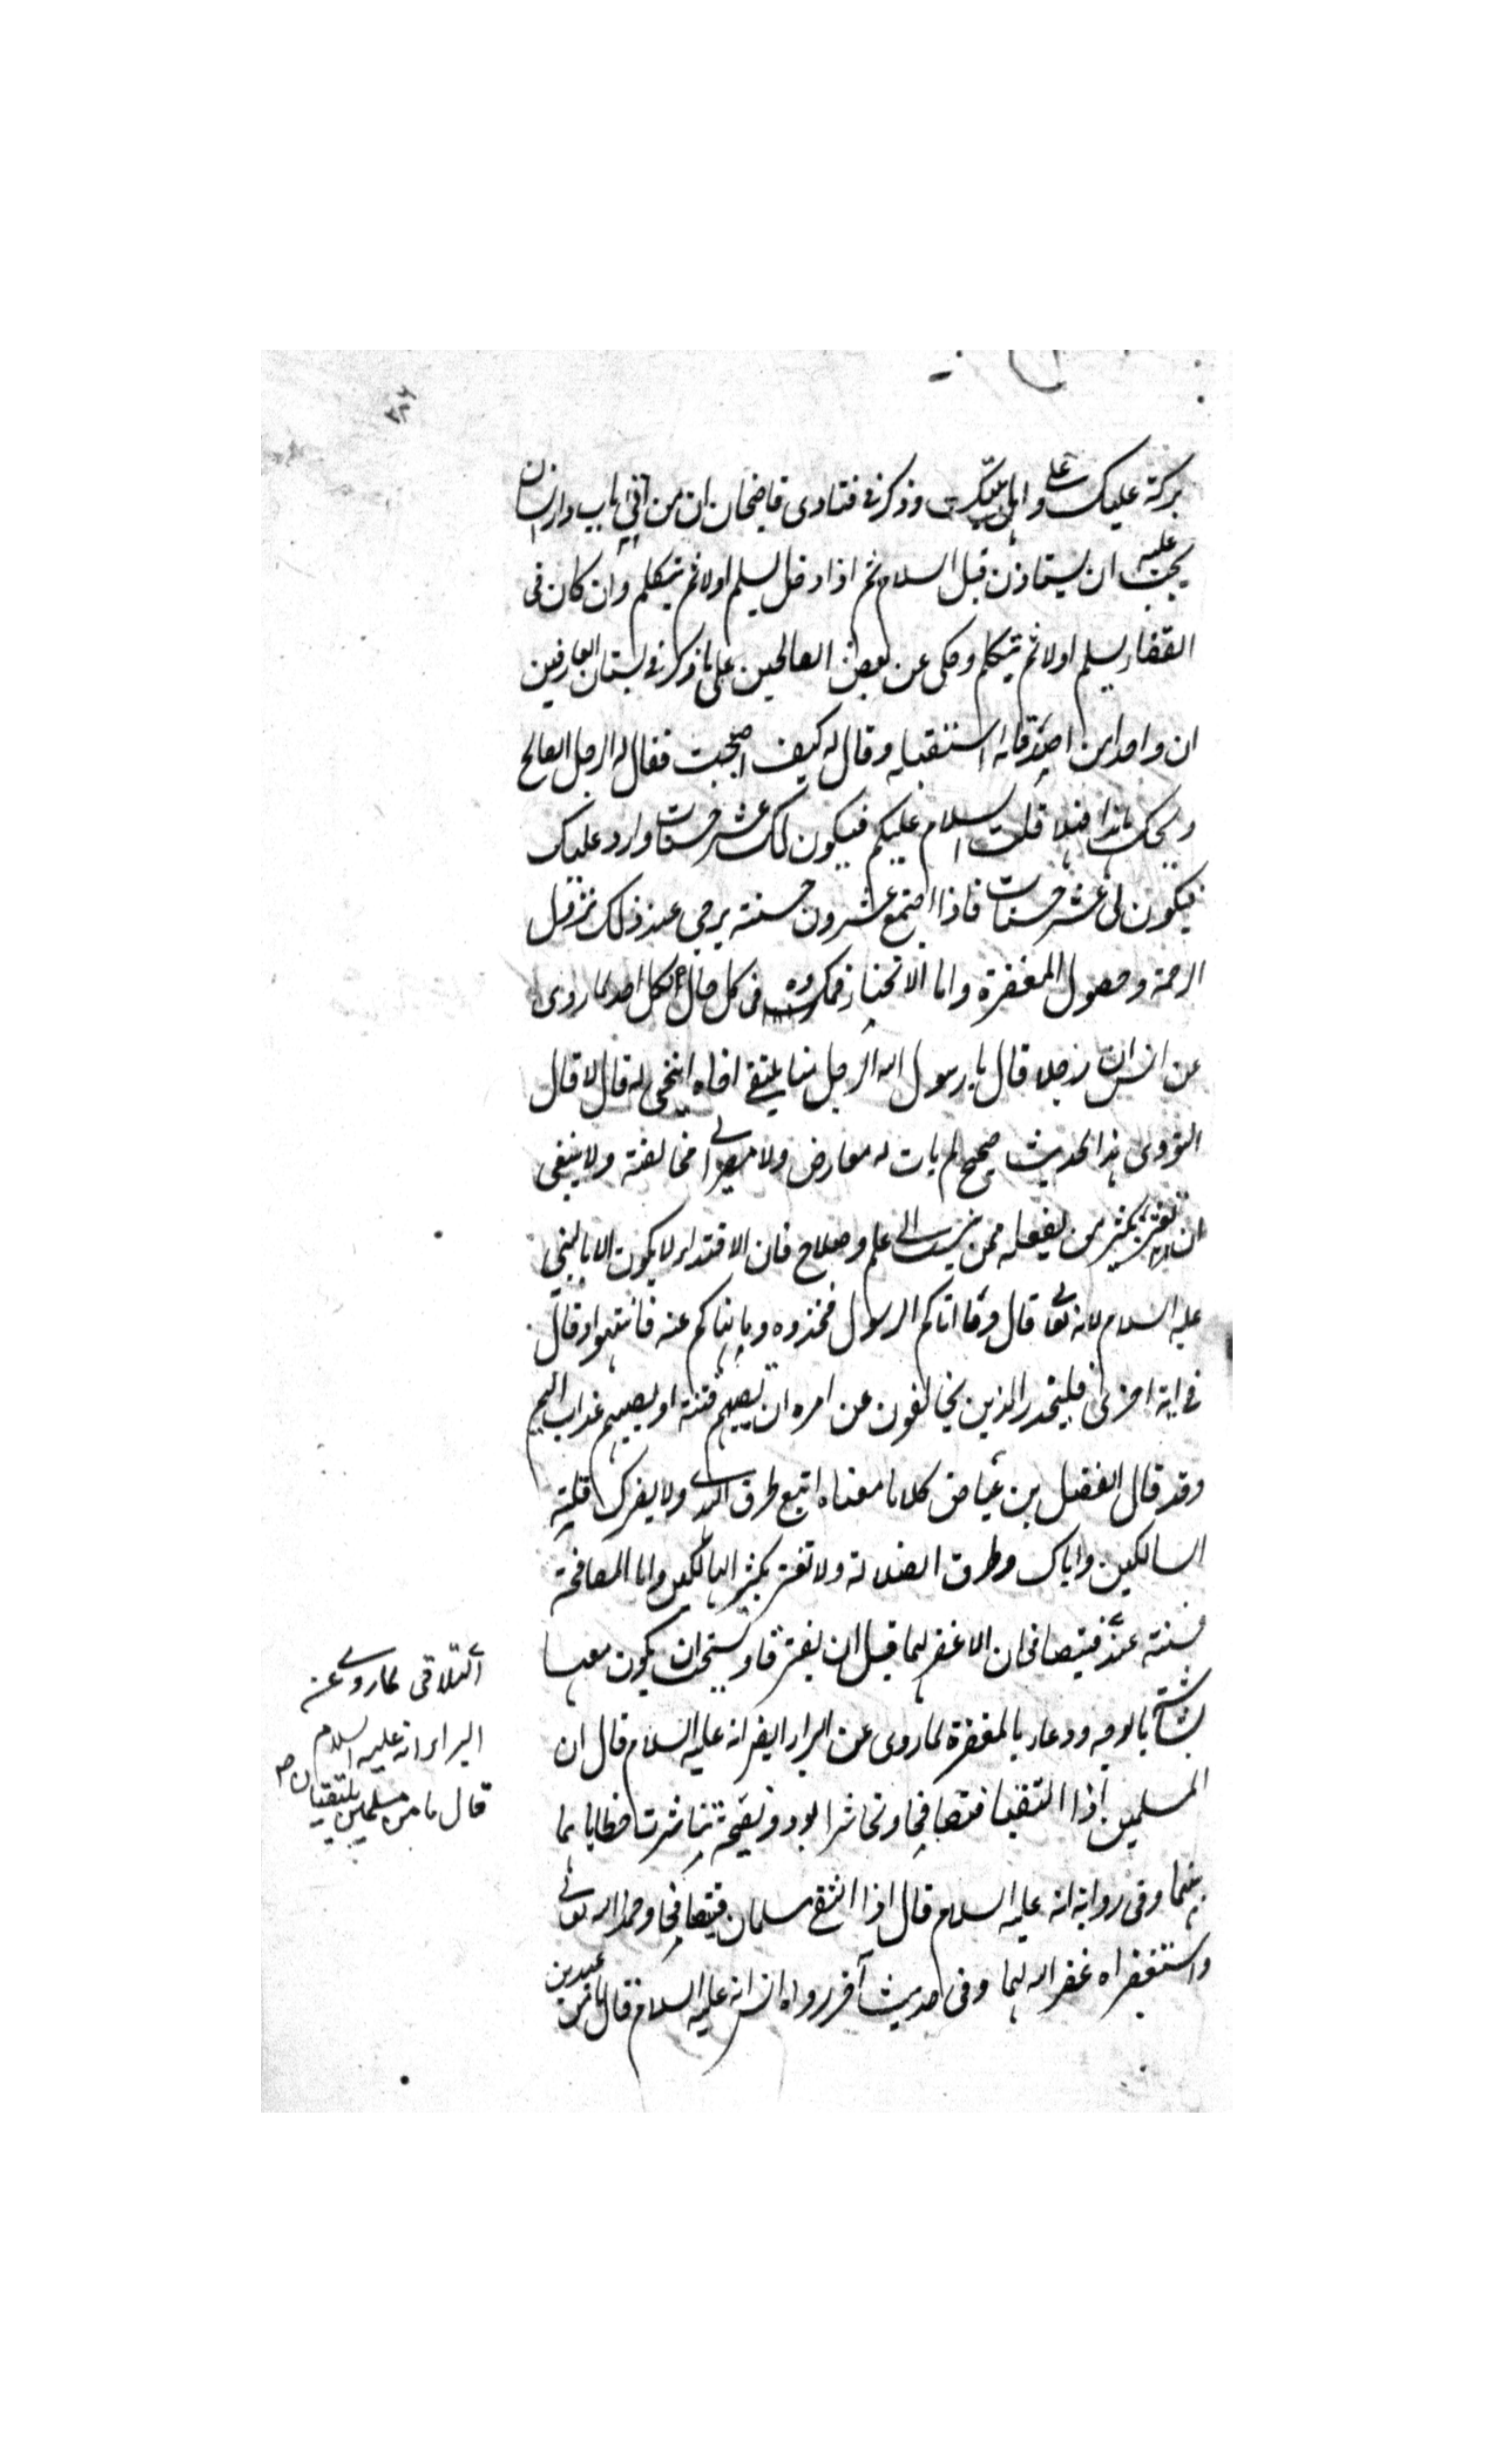 بركة عليك وعلى اهل بيتك وذكر فى فتاوى قاضيخان ان من اتى باب دار انسان
يجب عليه ان يستاذن قبل السلام ثم اذا دخل يسلم اولا ثم يتكلم وان كان فى
القضاء يسلم اولا ثم يتكلم وحكى عن بعض الصالحين على ما ذكر فى بستان العارفين
ان واحدا من اصدقائه استقبله وقال له كيف اصبحت فقال له الرجل الصالح
ويحك هذا فهلا قلت السلام عليكم فيكون لك عشر حسنات وارد عليك
فيكون لى عشر حسنات فاذا اجتمع عشرون حسنة يرجى عند ذلك نزول
الرحمة وحصول المغفرة واما الانحناء فمكروه فى كل حال لكل احد لما روى
عن انس ان رجلا قال يا رسول الله الرجل منا يلتقى اخاه اينحنى له قال لا قال
النووى هذا الحديث صحيح لم يات له معارض ولا مصير الى مخالفته ولا ينبغى
ان يغتر بكثير من يفعله ممن ينسب الى علم وصلاح فان الاقتداء لا يكون الا بالنبى
عليه السلام لانه تعالى قال وما اتاكم الرسول فخذوه وما نهاكم عنه فانتهوا وقال
فى اية اخرى فليحذر الذين يخالفون عن امره ان تصيبهم فتنة او يصيبهم عذاب اليم
وقد قال الفضيل بن عياض كلاما معناه اتبع طرق الهدى ولا يضرك قلة
السالكين واياك وطرق الضلالة ولا تغتر بكثير الهالكين واما المصافحة
فسنة عند فيتصافحان الا غفر لهما قبل ان يفترقا ويستحب ان يكون معها
بشاشة بالوجه ودعاء بالمغفرة لما روى عن البراء ايضا انه عليه السلام قال ان
المسلمين اذا التقيا فتصافحا وتكاشرا بود ونصيحة تناثرت خطاياهما
بينهما وفى رواية انه عليه السلام قال اذا التقى مسلمان فتصافحا وحمدا الله تعالى
واستغفراه غفر الله لهما وفى حديث آخر رواه انس انه عليه السلام قال ما من عبدين
التلاقى لما روى عن
البراء انه عليه السلام
قال ما من مسلمين يلتقيان صح